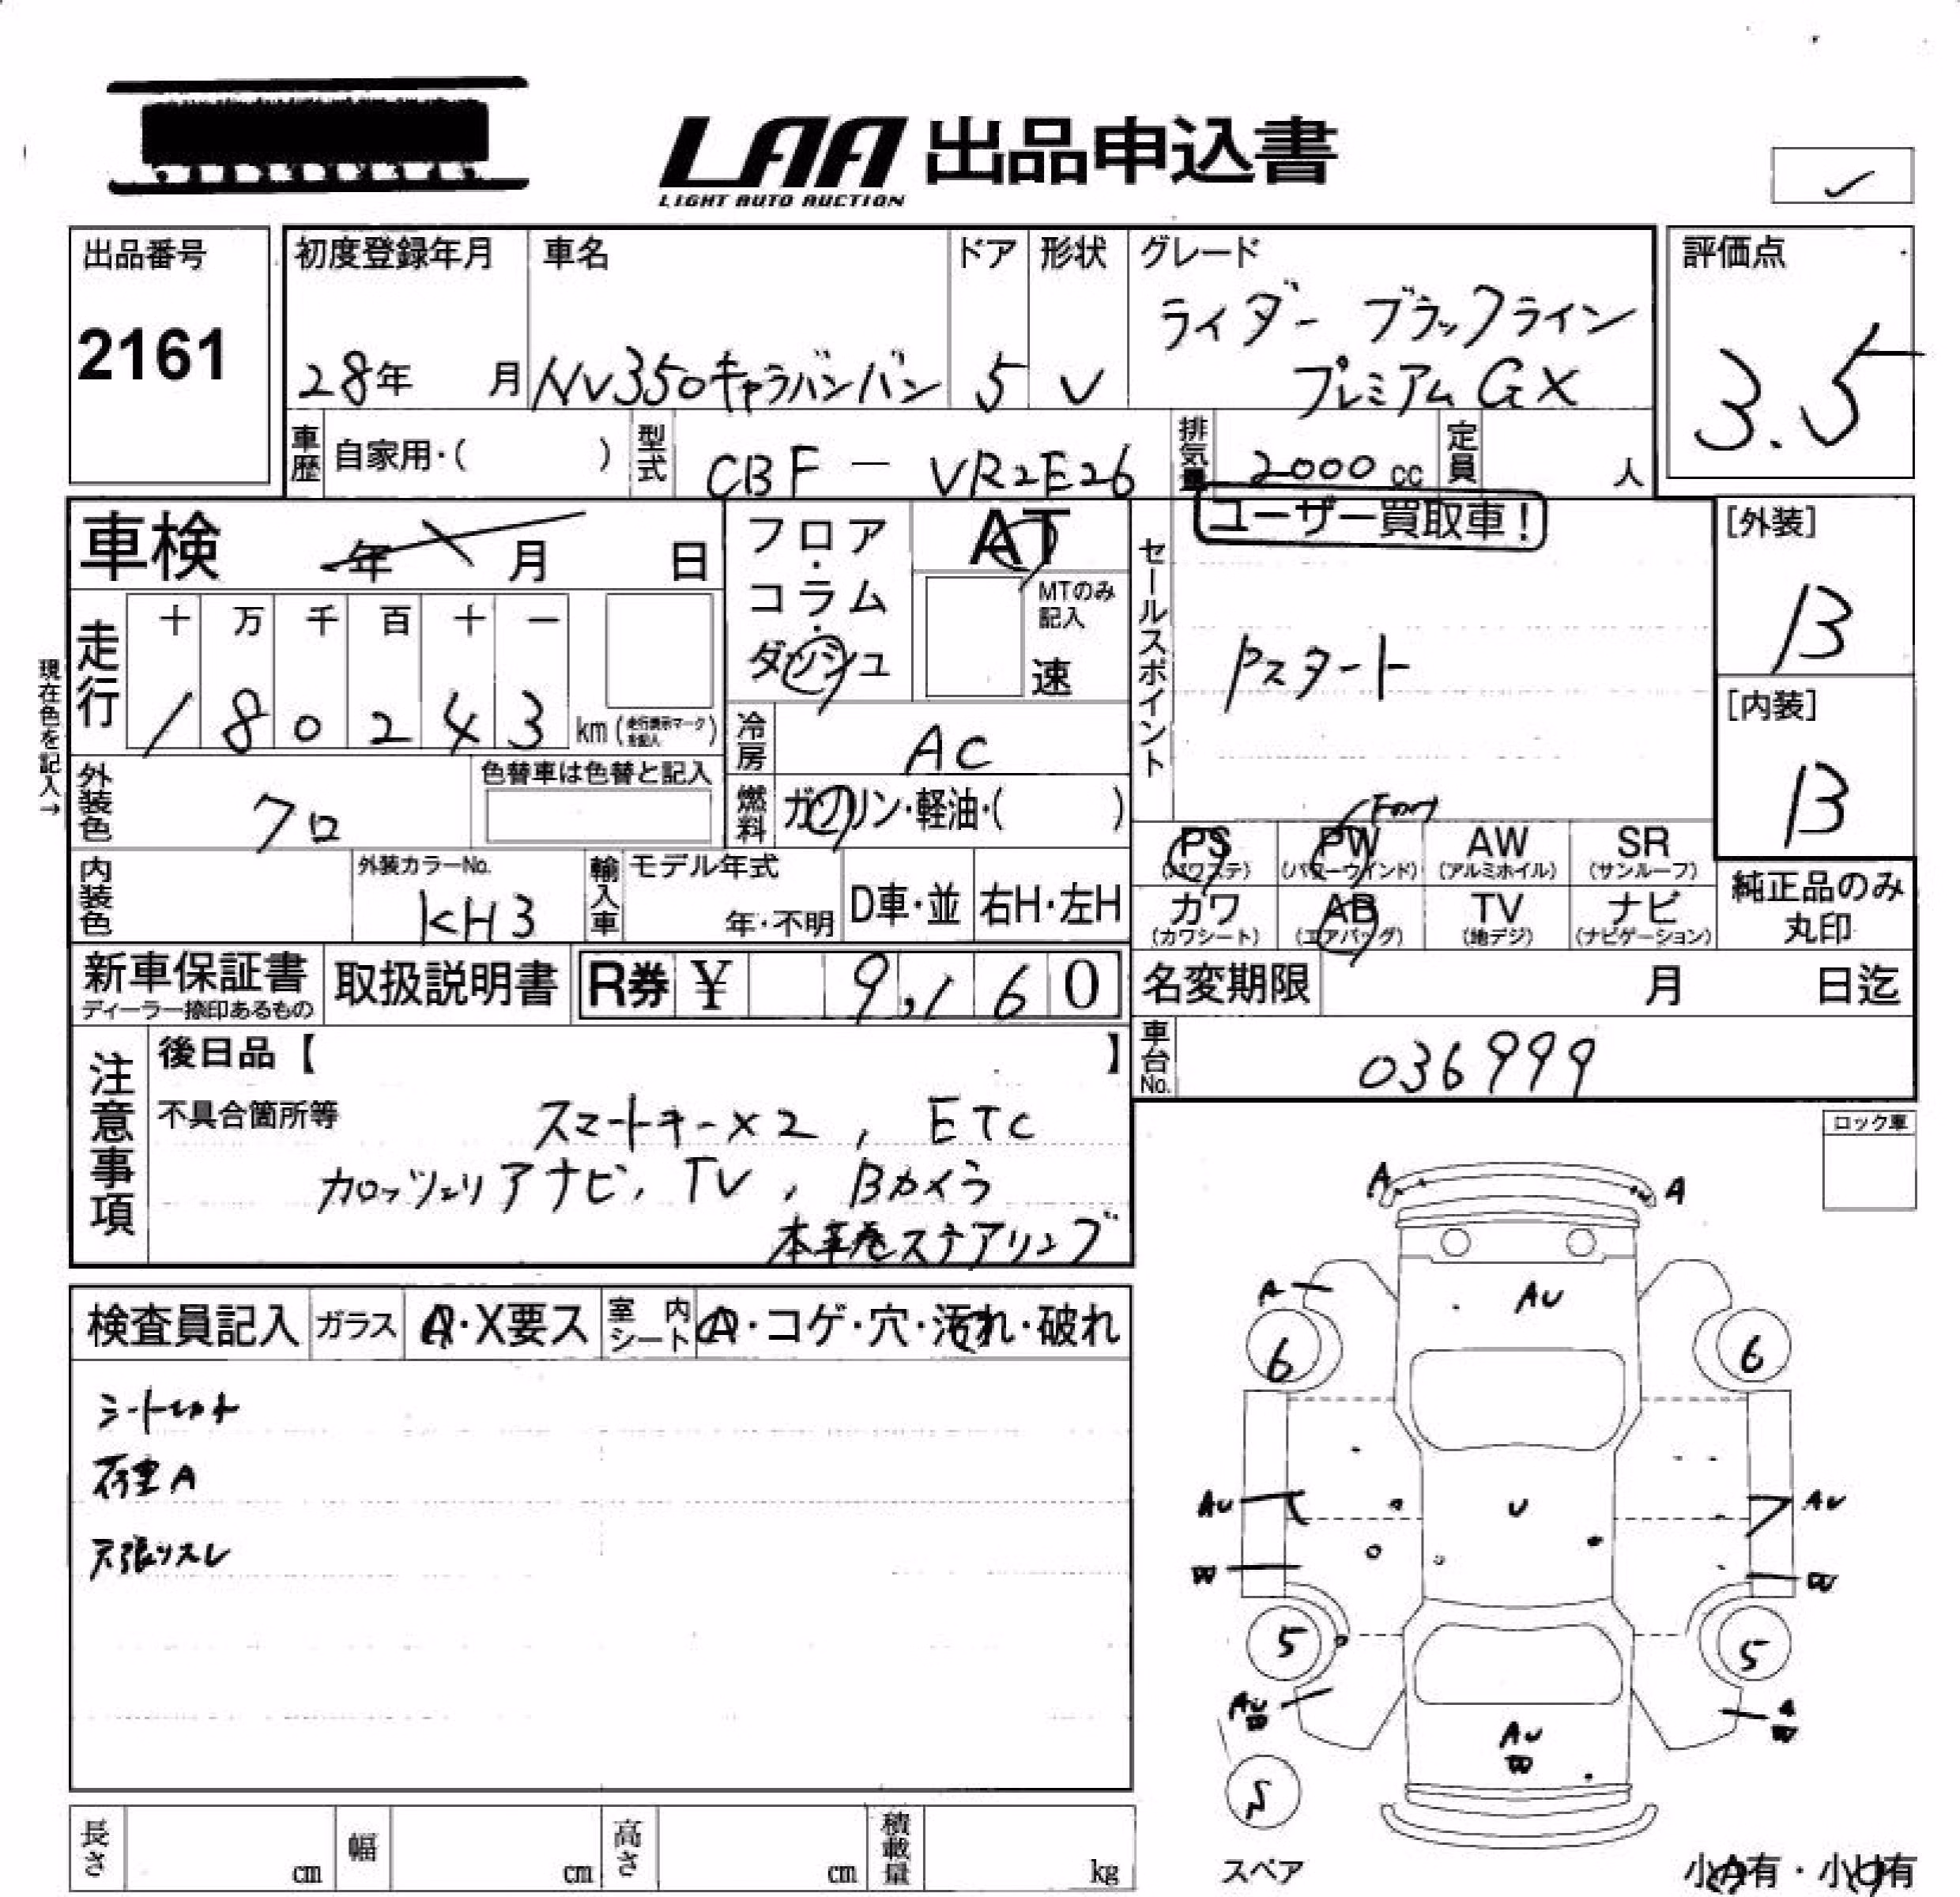 LAA 出品申込書
LIGHT AUTO AUCTION
✓
出品番号
2161
初度登録年月
28年 月
車名
NV350キャラバンバン
ドア
5
形状
V
グレード
ライダー ブラックライン
プレミアム GX
評価点
3.5
車歴 自家用・( )
型式 CBF - VR2E26
排気量 2000 cc
定員 人
車検 年 月 日
フロア・コラム・ダッシュ
AT
MTのみ記入
速
セールスポイント
ユーザー買取車!
Pスタート
[外装]
B
[内装]
B
現在色を記入→
走行 十 万 千 百 十 一
1 8 0 2 4 3 km (走行表示マークを記入)
冷房 AC
燃料 ガソリン・軽油・( )
外装色 クロ
色替車は色替と記入
内装色
外装カラーNo.
KH3
輸入車 モデル年式
年・不明
D車・並
右H・左H
PS (パワステ)
PW (パワーウインド)
AW (アルミホイル)
SR (サンルーフ)
カワ (カワシート)
AB (エアバッグ)
TV (地デジ)
ナビ (ナビゲーション)
純正品のみ丸印
新車保証書
ディーラー捺印あるもの
取扱説明書
R券 ¥ 9,160
名変期限 月 日迄
車台No. 036999
注意事項
後日品【 】
不具合箇所等
スマートキー×2, ETC
カロッツェリアナビ, TV, Bカメラ
本革巻ステアリング
ロック車
検査員記入
ガラス A・X要ス
室内シート A・コゲ・穴・汚れ・破れ
荷室A
A
A
A
AU
6
6
AU
U
AU
W
W
5
5
AU
W
AU
W
A
W
5
スペア
小A有・小U有
長さ cm
幅 cm
高さ cm
積載量 kg